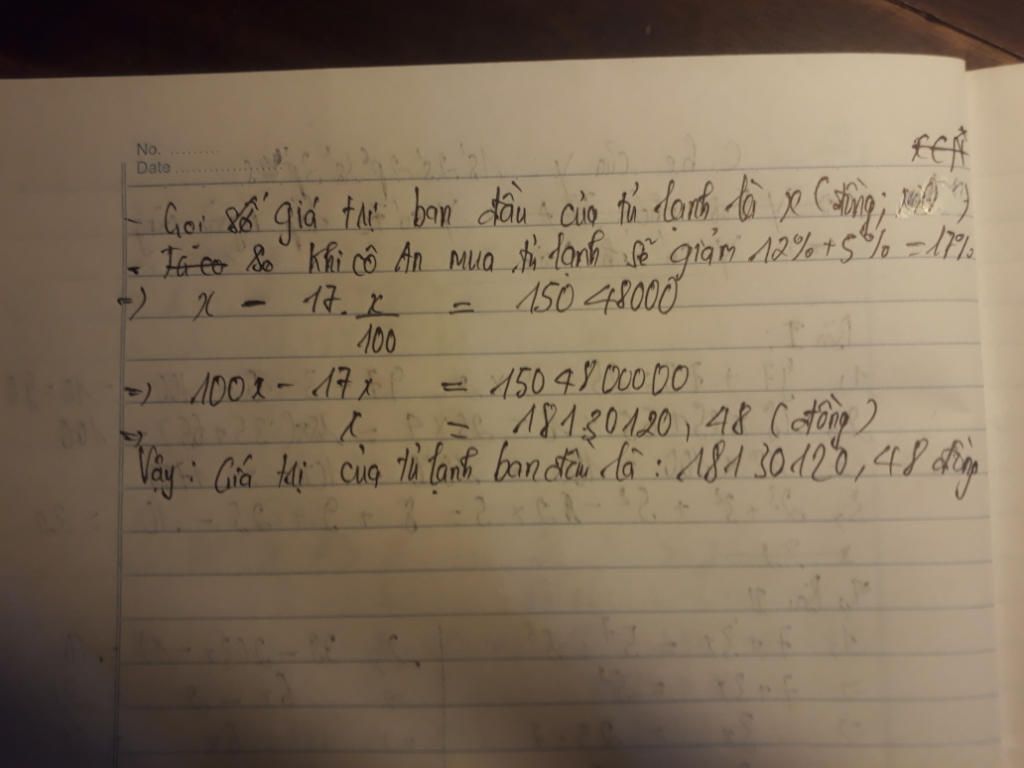 No. .........
Date .....................
- Gọi số giá trị ban đầu của tủ lạnh là x (đồng; )
- Ta có so khi cô An mua tủ lạnh sẽ giảm 12% + 5% = 17%
=) x - 17. x/100 = 15048000
=) 100x - 17x = 1504800000
=) x = 18130120,48 (đồng)
Vậy: Giá trị của tủ lạnh ban đầu là : 18130120,48 đồng